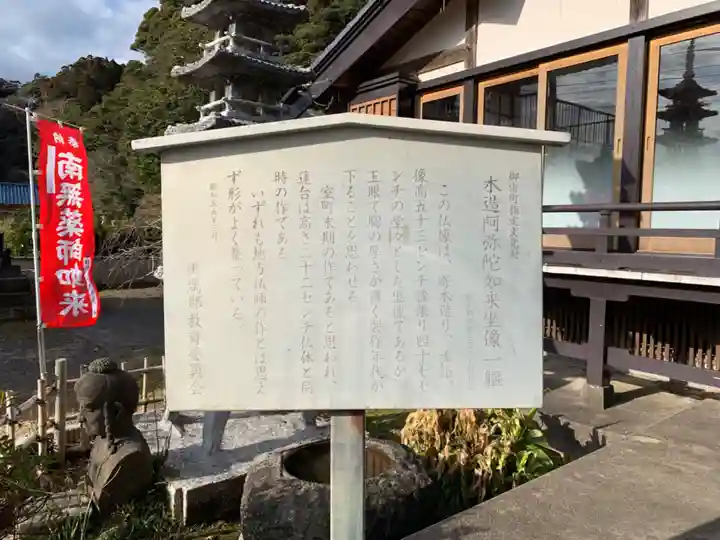 御宿町指定文化財
木造阿弥陀如来坐像一軀
この仏像は、寄木造り、
像高五十三センチ膝張り四十七セ
ンチの堂々とした坐像であるが
玉眼で胸の厚さが薄く製作年代が
下ることを思わせる。
室町末期の作であると思われ、
蓮台は高さ二十二センチ仏体と同
時の作である。
いずれも地方仏師の作とは思え
ず形がよく整っている。
教育委員会
奉納
南無薬師如来